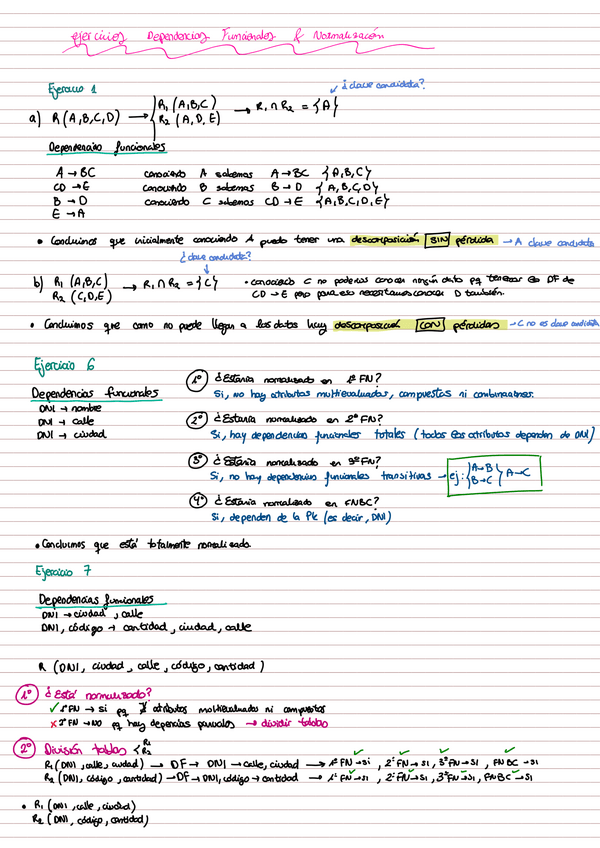 Ejercicios Dependencias Funcionales & Normalización
Ejercicio 1
¿clave candidata?
a) R(A,B,C,D) → R1 (A,B,C) → R1 ∩ R2 = {A}
R2 (A,D,E)
Dependencias funcionales
A → BC conociendo A sabemos A→BC {A,B,C}
CD → E conociendo B sabemos B→D {A,B,C,D}
B → D conociendo C sabemos CD→E {A,B,C,D,E}
E → A
• Concluimos que inicialmente conociendo A puedo tener una descomposición SIN pérdida → A clave candidata
¿clave candidata?
b) R1 (A,B,C) → R1 ∩ R2 = {C} • conociendo C no podemos conocer ningún dato pq tenemos la DF de
R2 (C,D,E) CD → E pero para eso necesitamos conocer D también.
• Concluimos que como no puede llegar a los datos hay descomposición CON pérdidas → C no es clave candidata
Ejercicio 6
1º ¿Estaría normalizado en 1ª FN?
Si, no hay atributos multievaluados, compuestos ni combinaciones.
Dependencias funcionales
DNI → nombre
DNI → calle
DNI → ciudad
2º ¿Estaría normalizado en 2ª FN?
Si, hay dependencias funcionales totales (todos los atributos dependen de DNI)
3º ¿Estaría normalizado en 3ª FN?
Si, no hay dependencias funcionales transitivas → ej: {A→B B→C} A→C
4º ¿Estaría normalizado en FNBC?
Si, dependen de la PK (es decir, DNI)
• Concluimos que está totalmente normalizado
Ejercicio 7
Dependencias funcionales
DNI → ciudad, calle
DNI, código → cantidad, ciudad, calle
R (DNI, ciudad, calle, código, cantidad)
1º ¿Está normalizado?
✓ 1ª FN → Si pq ∄ atributos multievaluados ni compuestos
x 2ª FN → NO pq hay depencias parciales → dividir tablas
2º División tablas { R1 R2
R1 (DNI, calle, ciudad) → DF → DNI → calle, ciudad → 1ª FN → si, 2ª FN → si, 3ª FN → si, FNBC → si
R2 (DNI, código, cantidad) → DF → DNI, código → cantidad → 1ª FN → si, 2ª FN → si, 3ª FN → si, FNBC → si
• R1 (DNI, calle, ciudad)
R2 (DNI, código, cantidad)